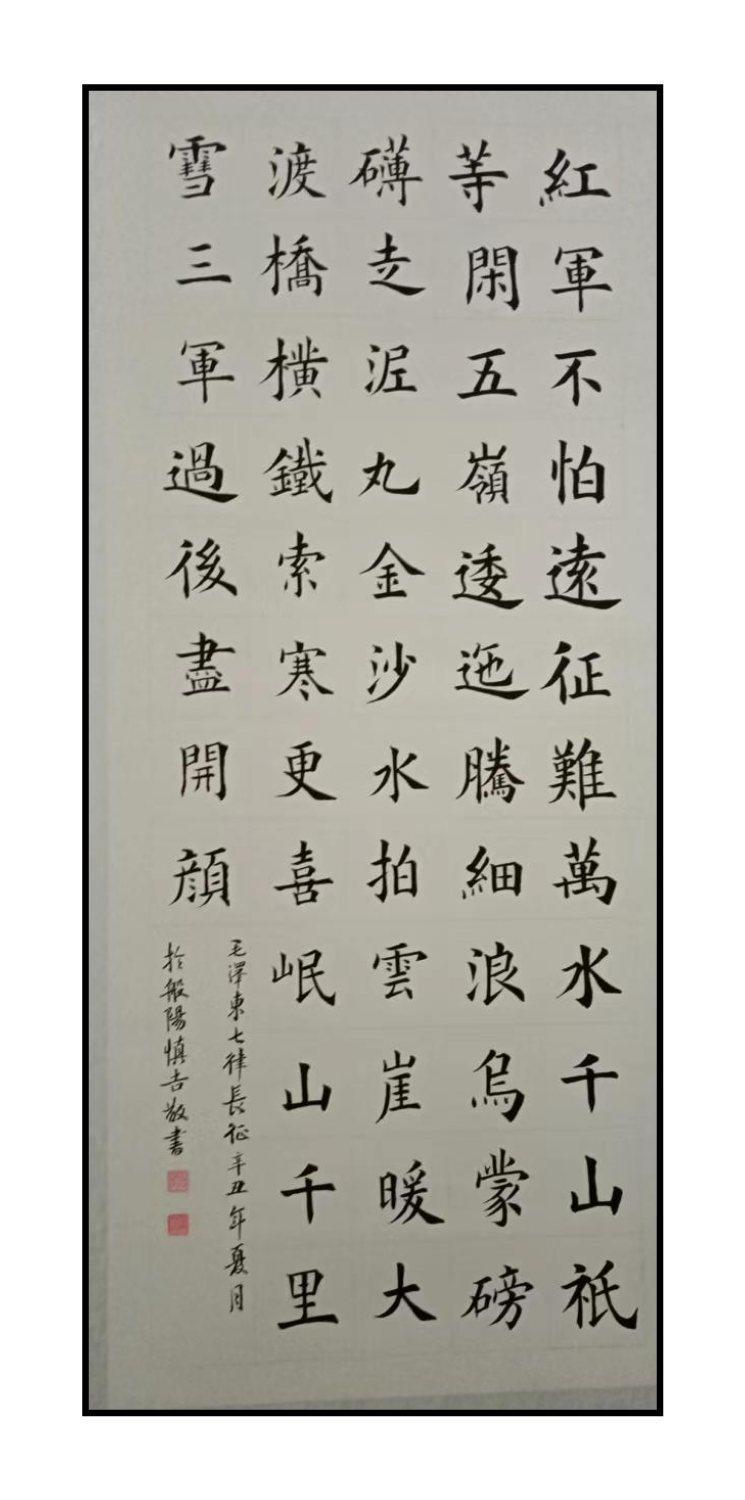 紅軍不怕遠征難萬水千山祇
等閑五嶺逶迤騰細浪烏蒙磅
礴走泥丸金沙水拍雲崖暖大
渡橋橫鐵索寒更喜岷山千里
雪三軍過後盡開顏
毛澤東七律長征辛丑年夏月
於般陽慎吉敬書